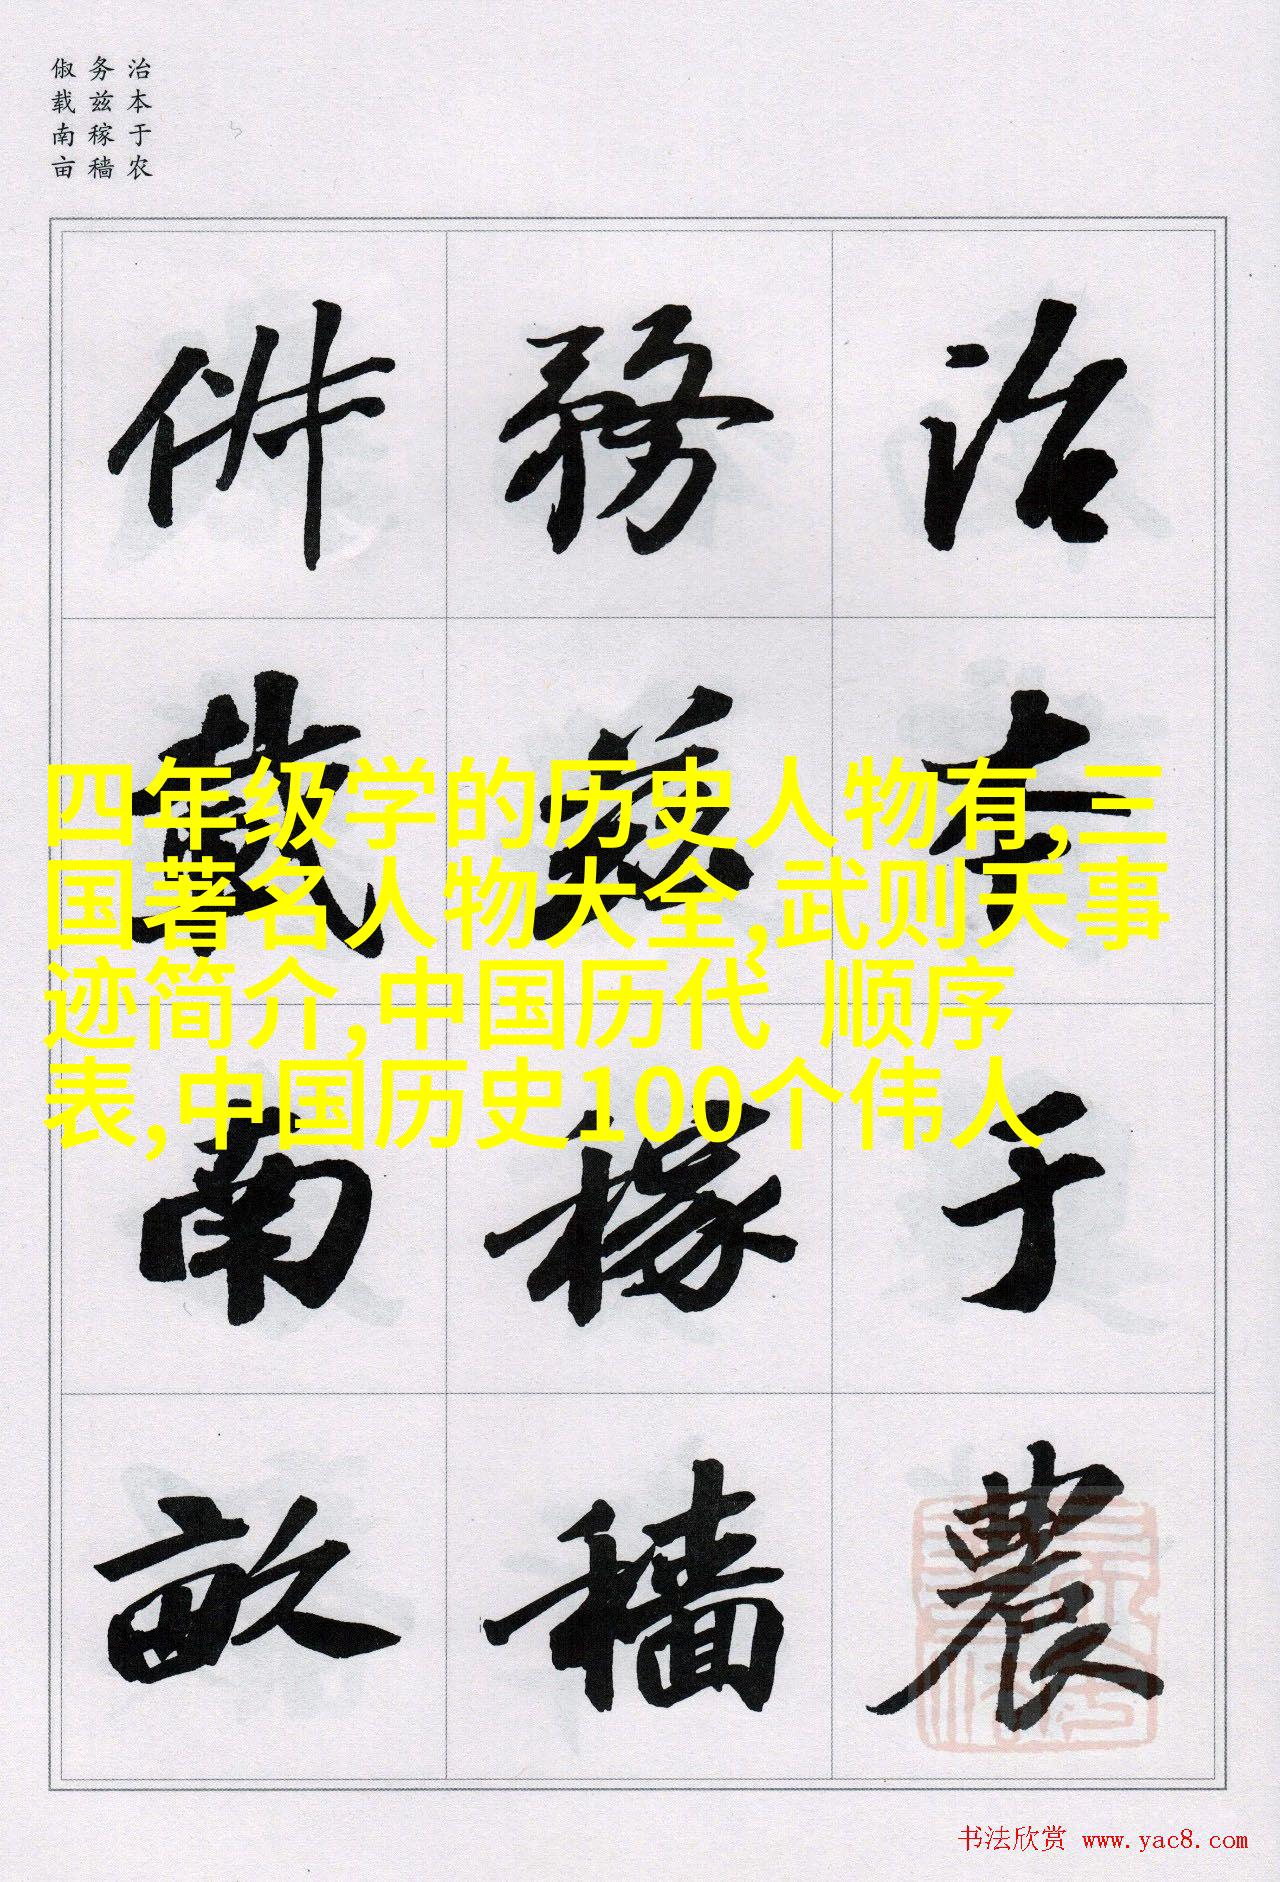 治本于农
务兹稼穑
俶载南亩
治本于農
務兹稼穡
俶載南畝
四年级学的历史人物有,三
国著名人物大全,武则天事
迹简介,中国历代 顺序
表,中国历史100个伟人
书法欣赏 www.yac8.com